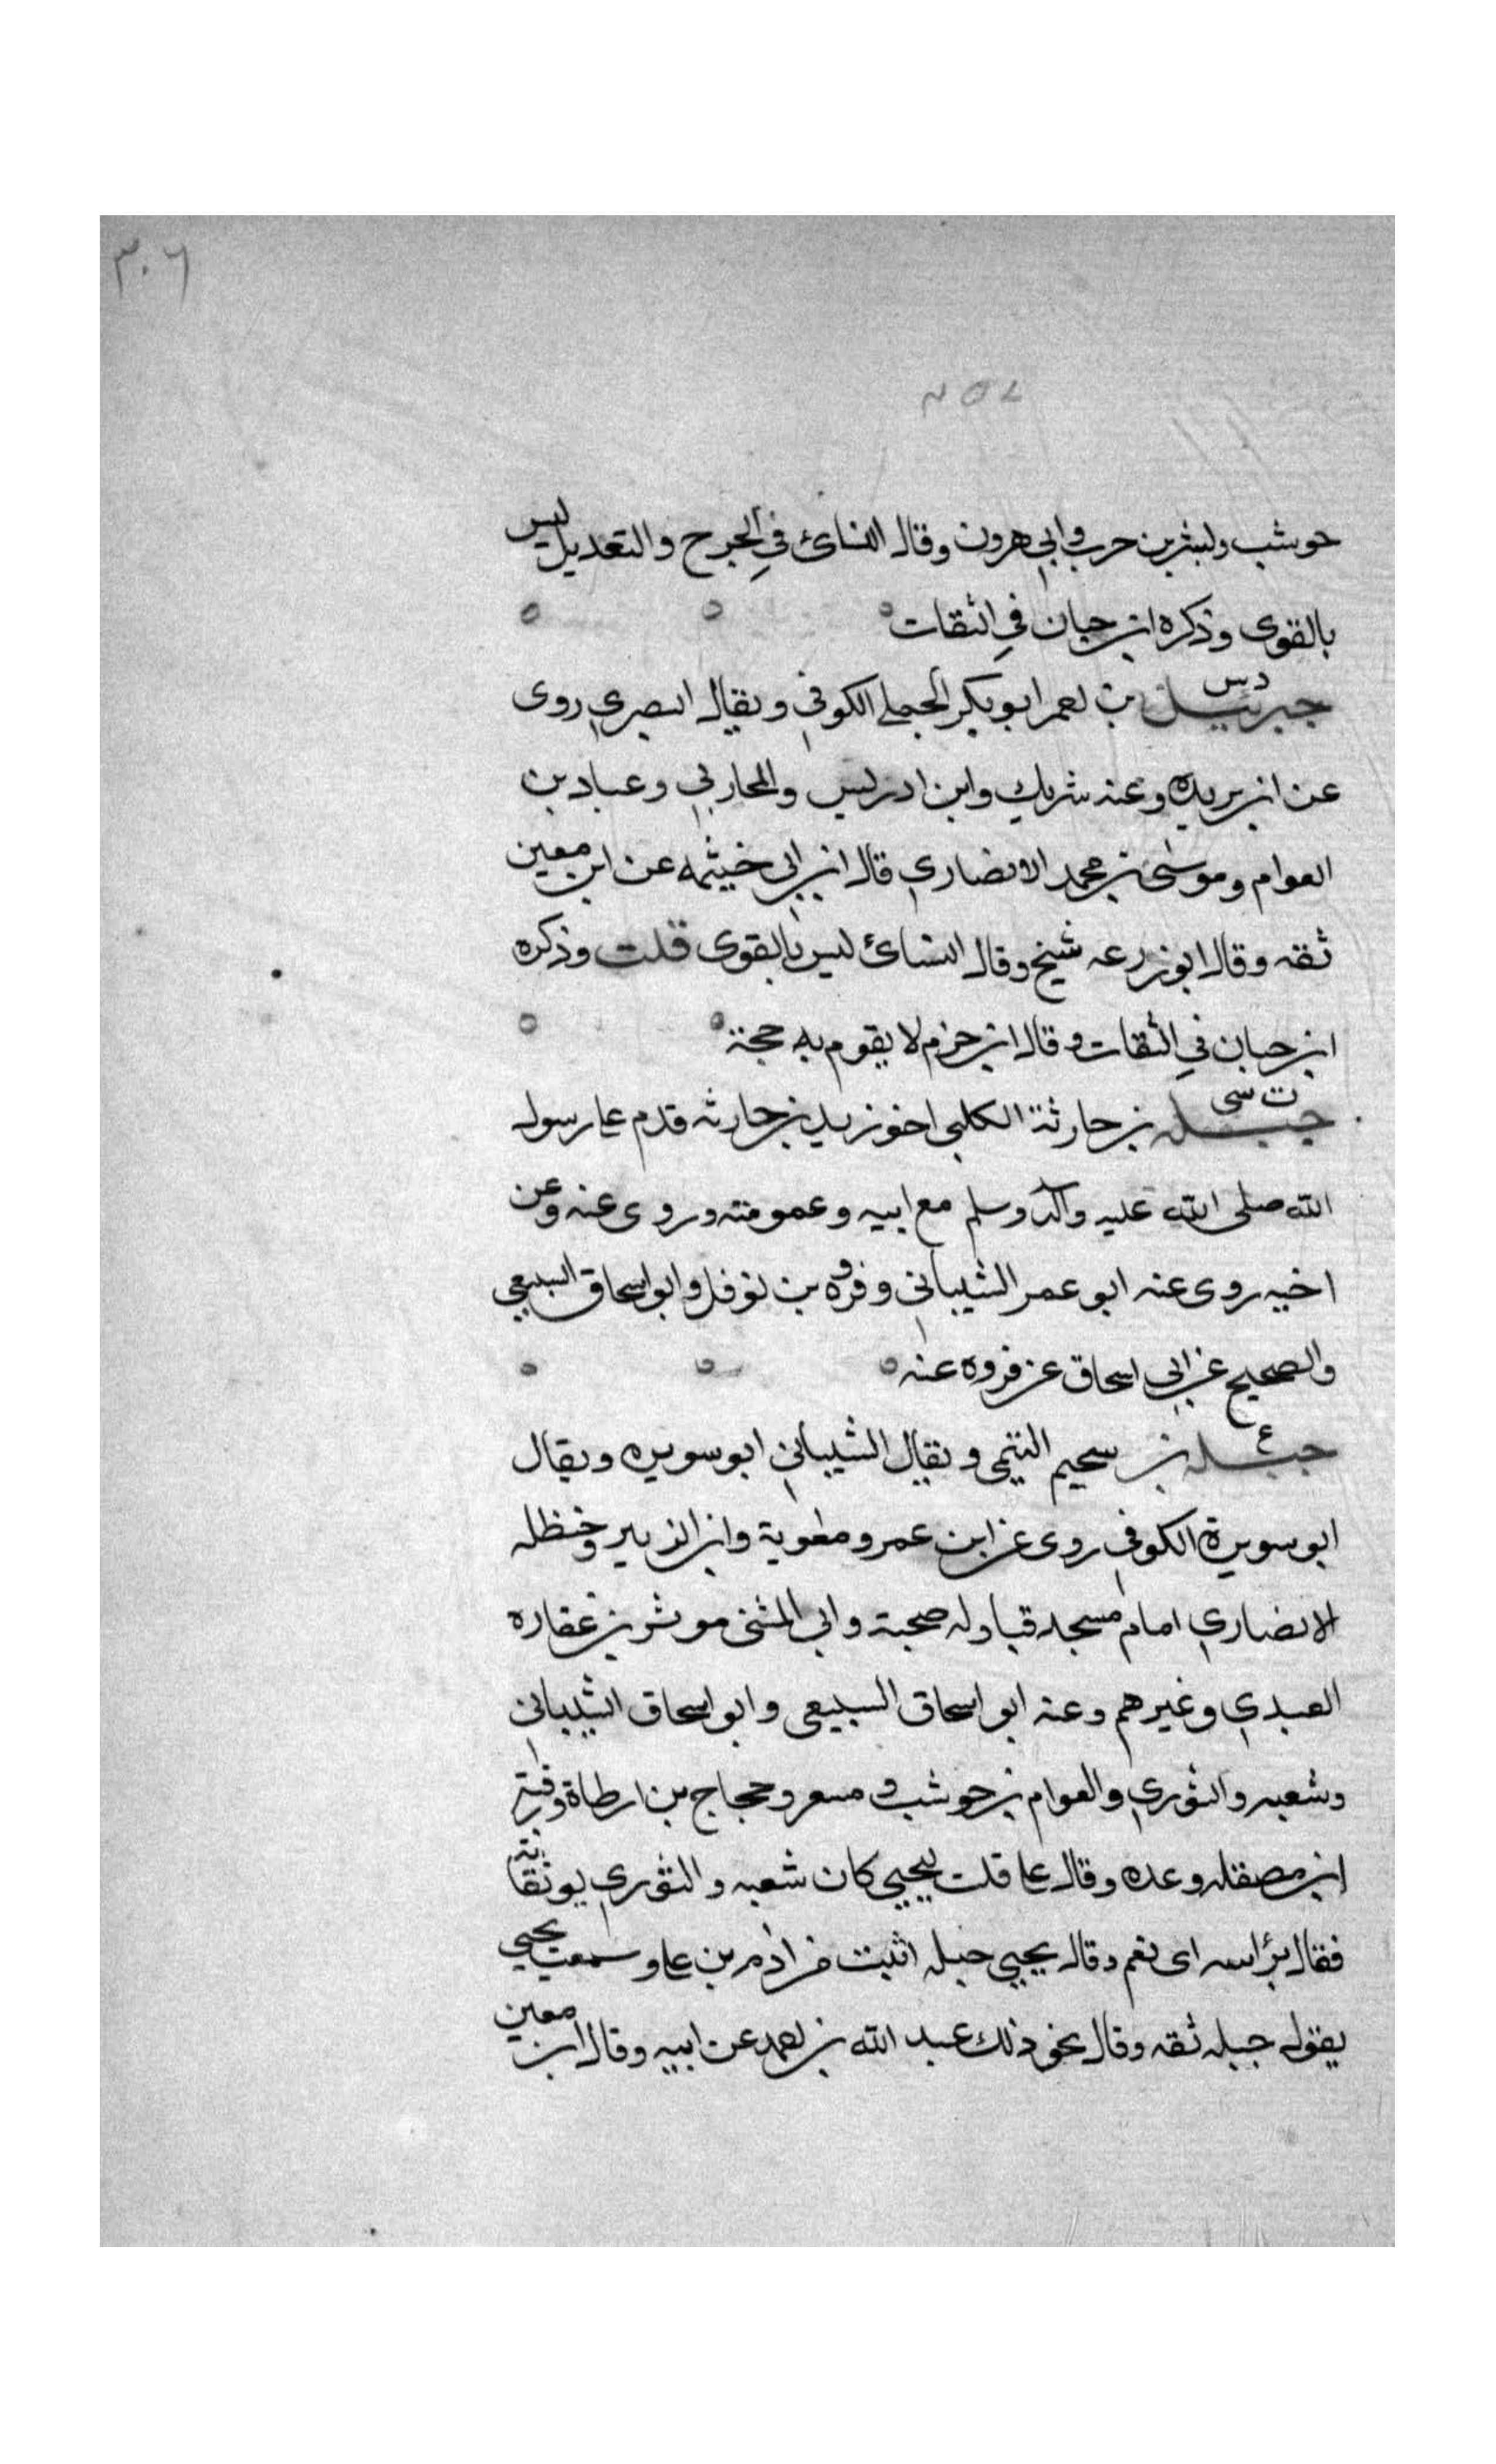 ٣٠٦
حوشب ولبشر بن حرب وابي هرون وقال النسائ في الجرح والتعديل ليس
بالقوى وذكره ابن حبان في الثقات
د س
جبرئيل بن احمر ابو بكر الجملي الكوفي ويقال البصري روى
عن ابن بريده وعنه شريك وابن ادريس والمحاربي وعباد بن
العوام وموسى بن محمد الانصاري قال ابن ابى خيثمه عن ابن معين
ثقه وقال ابو زرعه شيخ وقال النسائ ليس بالقوى قلت وذكره
ابن حبان في الثقات وقال ابن حزم لا يقوم به حجة
ت سى
جبله بن حارثة الكلبى اخو زيد بن حارثه قدم على رسول
الله صلى الله عليه وآله وسلم مع ابيه وعمومته وروى عنه وعن
اخيه روى عنه ابو عمر الشيبانى وفروه بن نوفل وابو اسحاق السبيعى
والصحيح عن ابي اسحاق عن فروه عنه
ع
جبله بن سحيم التيمى ويقال الشيباني ابو سويره ويقال
ابو سويرة الكوفي روى عن ابن عمر ومعوية وابن الزبير وحنظله
الانصاري امام مسجد قبا وله صحبة وابي المثنى موثر بن عفاره
العبدي وغيرهم وعنه ابو اسحاق السبيعى وابو اسحاق الشيباني
وشعبه والثوري والعوام بن حوشب و مسعر وحجاج بن ارطاة ورقبة
ابن مصقله وعده وقال على قلت ليحيى كان شعبه والثوري يوثقانه
فقال برأسه اى نعم وقال يحيى جبله اثبت من ادم بن على وسمعت يحيى
يقول جبله ثقه وقال نحو ذلك عبد الله بن احمد عن ابيه وقال ابن معين